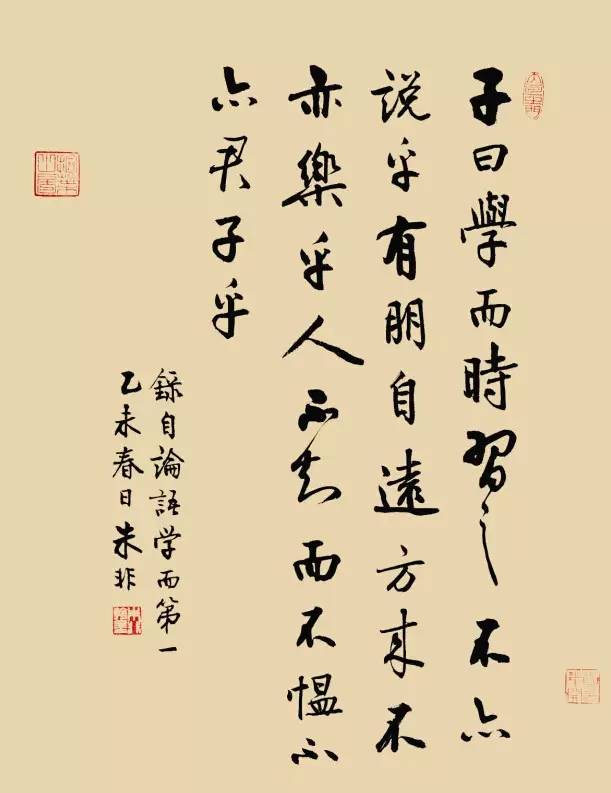 子曰學而時習之不亦
説乎有朋自遠方來不
亦樂乎人不知而不愠不
亦君子乎
錄自論語学而第一
乙未春日朱非